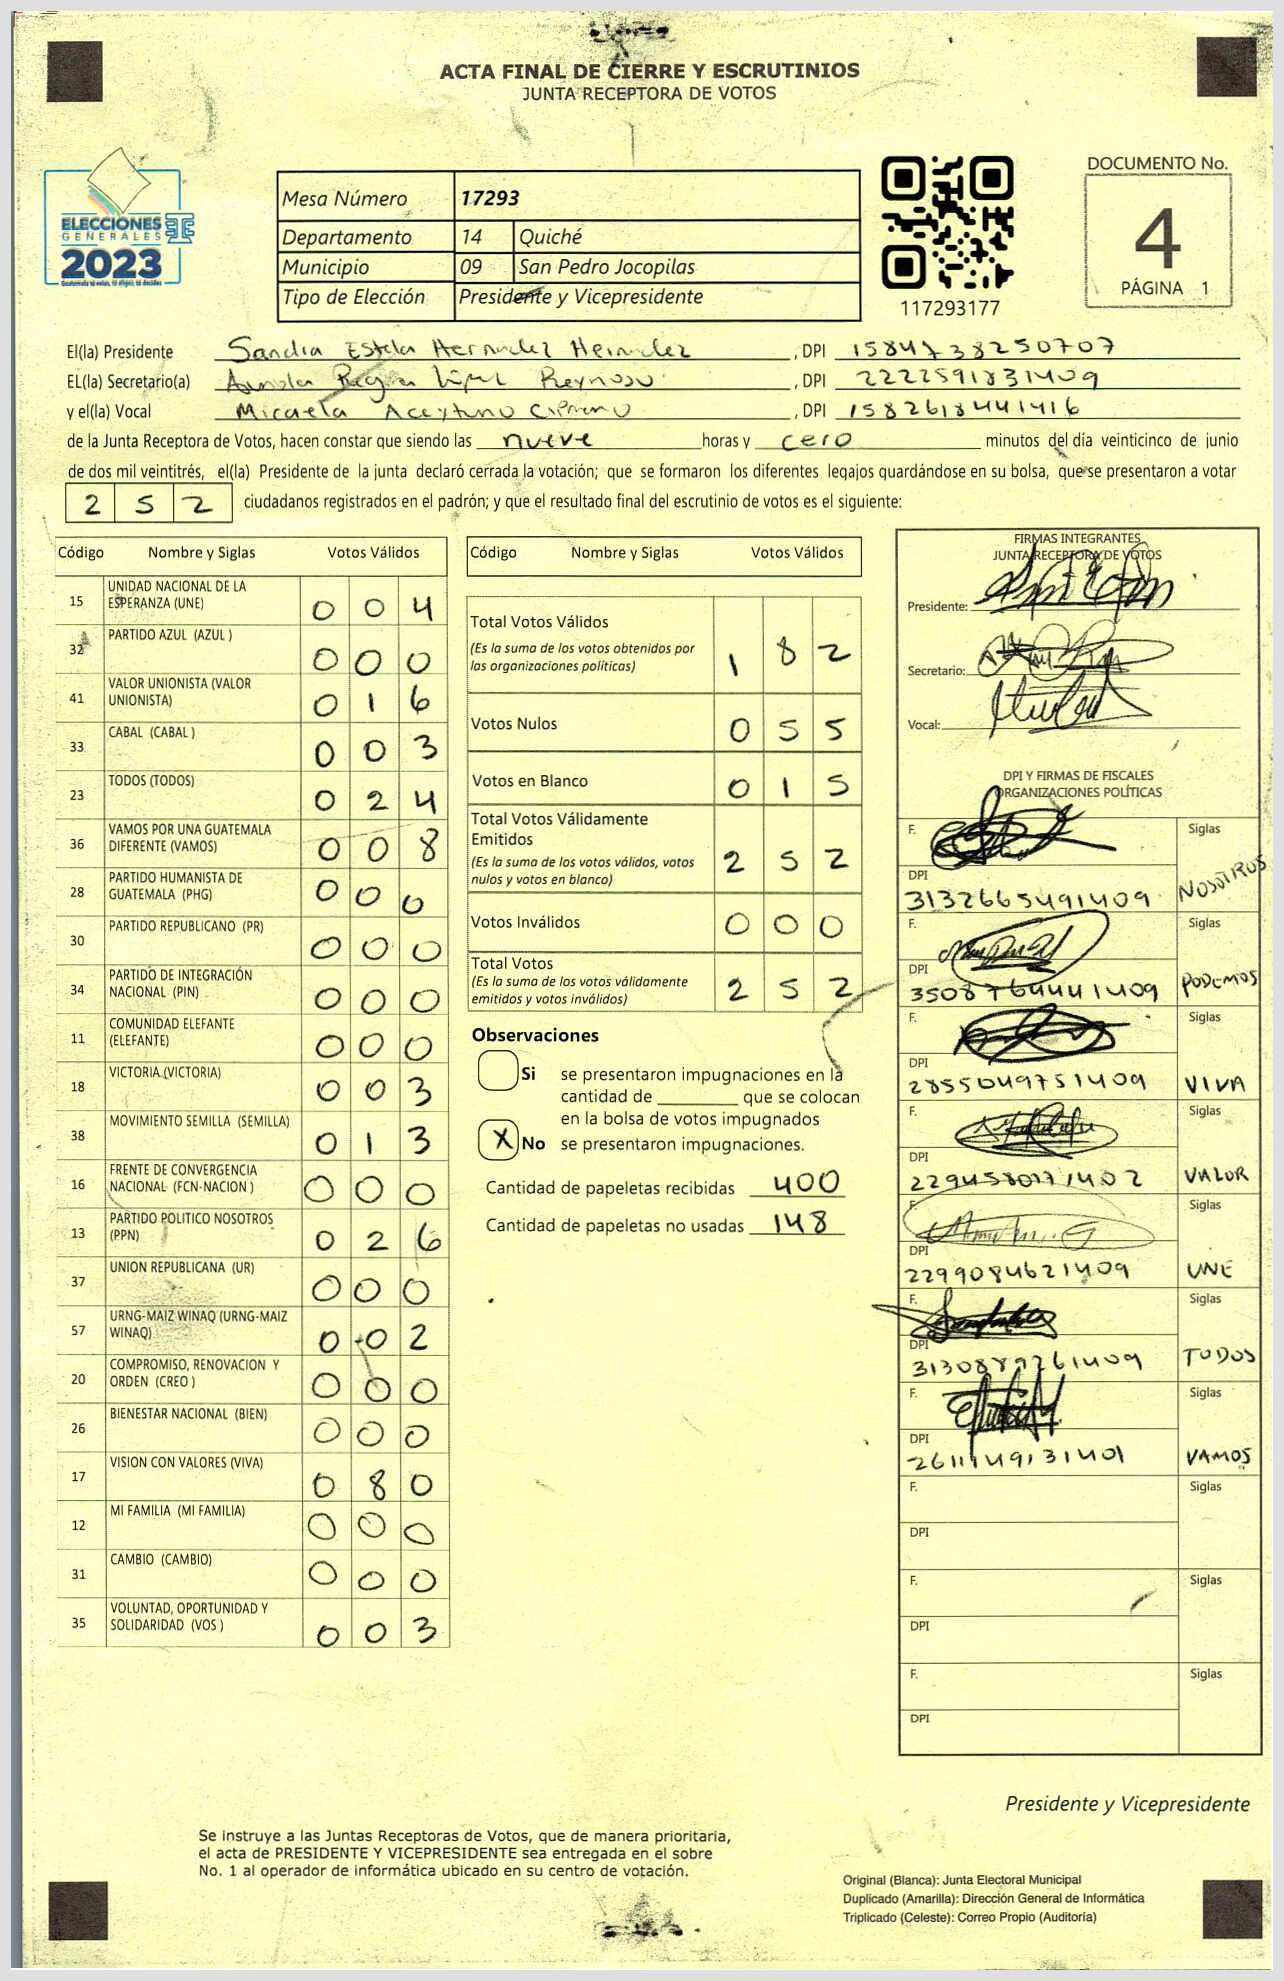 ACTA FINAL DE CIERRE Y ESCRUTINIOS
JUNTA RECEPTORA DE VOTOS
ELECCIONES
GENERALES
2023
Mesa Número 17293
Departamento 14 Quiché
Municipio 09 San Pedro Jocopilas
Tipo de Elección Presidente y Vicepresidente
117293177
DOCUMENTO No.
4
PÁGINA 1
El(la) Presidente Sandra Estela Hernandez Hernandez , DPI 1584738250707
EL(la) Secretario(a) Reyna López Reynoso , DPI 2222591831409
y el(la) Vocal Micaela Aceytuno Cipriano , DPI 1582618441416
de la Junta Receptora de Votos, hacen constar que siendo las nueve horas y cero minutos del día veinticinco de junio
de dos mil veintitrés, el(la) Presidente de la junta declaró cerrada la votación; que se formaron los diferentes legajos quardándose en su bolsa, que se presentaron a votar
2 5 2 ciudadanos registrados en el padrón; y que el resultado final del escrutinio de votos es el siguiente:
Código Nombre y Siglas Votos Válidos
15 UNIDAD NACIONAL DE LA ESPERANZA (UNE) 0 0 4
32 PARTIDO AZUL (AZUL ) 0 0 0
41 VALOR UNIONISTA (VALOR UNIONISTA) 0 1 6
33 CABAL (CABAL ) 0 0 3
23 TODOS (TODOS) 0 2 4
36 VAMOS POR UNA GUATEMALA DIFERENTE (VAMOS) 0 0 8
28 PARTIDO HUMANISTA DE GUATEMALA (PHG) 0 0 0
30 PARTIDO REPUBLICANO (PR) 0 0 0
34 PARTIDO DE INTEGRACIÓN NACIONAL (PIN) 0 0 0
11 COMUNIDAD ELEFANTE (ELEFANTE) 0 0 0
18 VICTORIA (VICTORIA) 0 0 3
38 MOVIMIENTO SEMILLA (SEMILLA) 0 1 3
16 FRENTE DE CONVERGENCIA NACIONAL (FCN-NACION ) 0 0 0
13 PARTIDO POLITICO NOSOTROS (PPN) 0 2 6
37 UNION REPUBLICANA (UR) 0 0 0
57 URNG-MAIZ WINAQ (URNG-MAIZ WINAQ) 0 0 2
20 COMPROMISO, RENOVACION Y ORDEN (CREO ) 0 0 0
26 BIENESTAR NACIONAL (BIEN) 0 0 0
17 VISION CON VALORES (VIVA) 0 8 0
12 MI FAMILIA (MI FAMILIA) 0 0 0
31 CAMBIO (CAMBIO) 0 0 0
35 VOLUNTAD, OPORTUNIDAD Y SOLIDARIDAD (VOS ) 0 0 3
Código Nombre y Siglas Votos Válidos
Total Votos Válidos 1 8 2
(Es la suma de los votos obtenidos por
las organizaciones políticas)
Votos Nulos 0 5 5
Votos en Blanco 0 1 5
Total Votos Válidamente
Emitidos 2 5 2
(Es la suma de los votos válidos, votos
nulos y votos en blanco)
Votos Inválidos 0 0 0
Total Votos 2 5 2
(Es la suma de los votos válidamente
emitidos y votos inválidos)
Observaciones
Si se presentaron impugnaciones en la
cantidad de ________ que se colocan
en la bolsa de votos impugnados
X No se presentaron impugnaciones.
Cantidad de papeletas recibidas 400
Cantidad de papeletas no usadas 148
FIRMAS INTEGRANTES
JUNTA RECEPTORA DE VOTOS
Presidente:
Secretario:
Vocal:
DPI Y FIRMAS DE FISCALES
ORGANIZACIONES POLÍTICAS
F. Siglas
DPI
3132665491409 NOSOTROS
F. Siglas
DPI
3508764441409 PODEMOS
F. Siglas
DPI
2855049751409 VIVA
F. Siglas
DPI
VALOR
F. Siglas
DPI
2299084621409 UNE
F. Siglas
DPI
3130889261409 TODOS
F. Siglas
DPI
2611149131401 VAMOS
F. Siglas
DPI
F. Siglas
DPI
F. Siglas
DPI
Presidente y Vicepresidente
Se instruye a las Juntas Receptoras de Votos, que de manera prioritaria,
el acta de PRESIDENTE Y VICEPRESIDENTE sea entregada en el sobre
No. 1 al operador de informática ubicado en su centro de votación.
Original (Blanca): Junta Electoral Municipal
Duplicado (Amarilla): Dirección General de Informática
Triplicado (Celeste): Correo Propio (Auditoría)